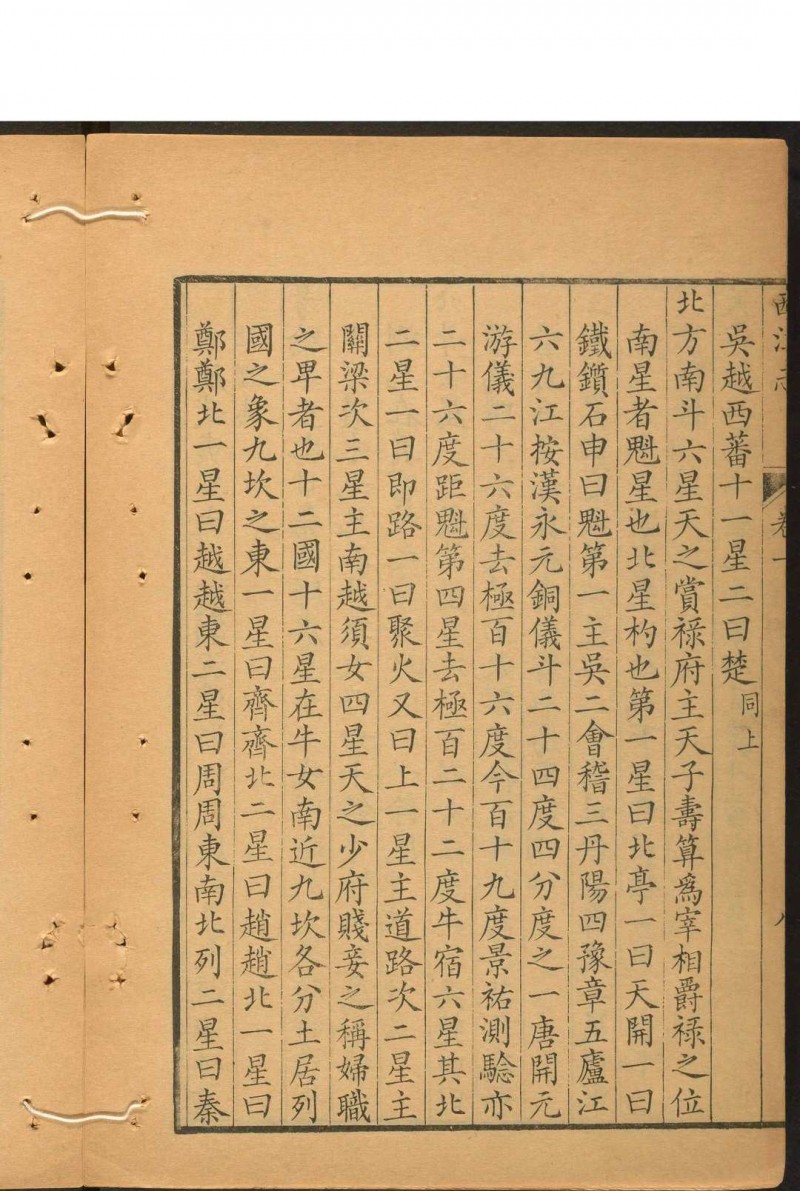 西江志 卷一 八
吳越西蕃十一星二曰楚同上
北方南斗六星天之賞祿府主天子壽算爲宰相爵祿之位
南星者魁星也北星杓也第一星曰北亭一曰天開一曰
鐵鑕石申曰魁第一主吳二會稽三丹陽四豫章五廬江
六九江按漢永元銅儀斗二十四度四分度之一唐開元
游儀二十六度去極百十六度今百十九度景祐測驗亦
二十六度距魁第四星去極百二十二度牛宿六星其北
二星一曰即路一曰聚火又曰上一星主道路次二星主
關梁次三星主南越須女四星天之少府賤妾之稱婦職
之卑者也十二國十六星在牛女南近九坎各分土居列
國之象九坎之東一星曰齊齊北二星曰趙趙北一星曰
鄭鄭北一星曰越越東二星曰周周東南北列二星曰秦